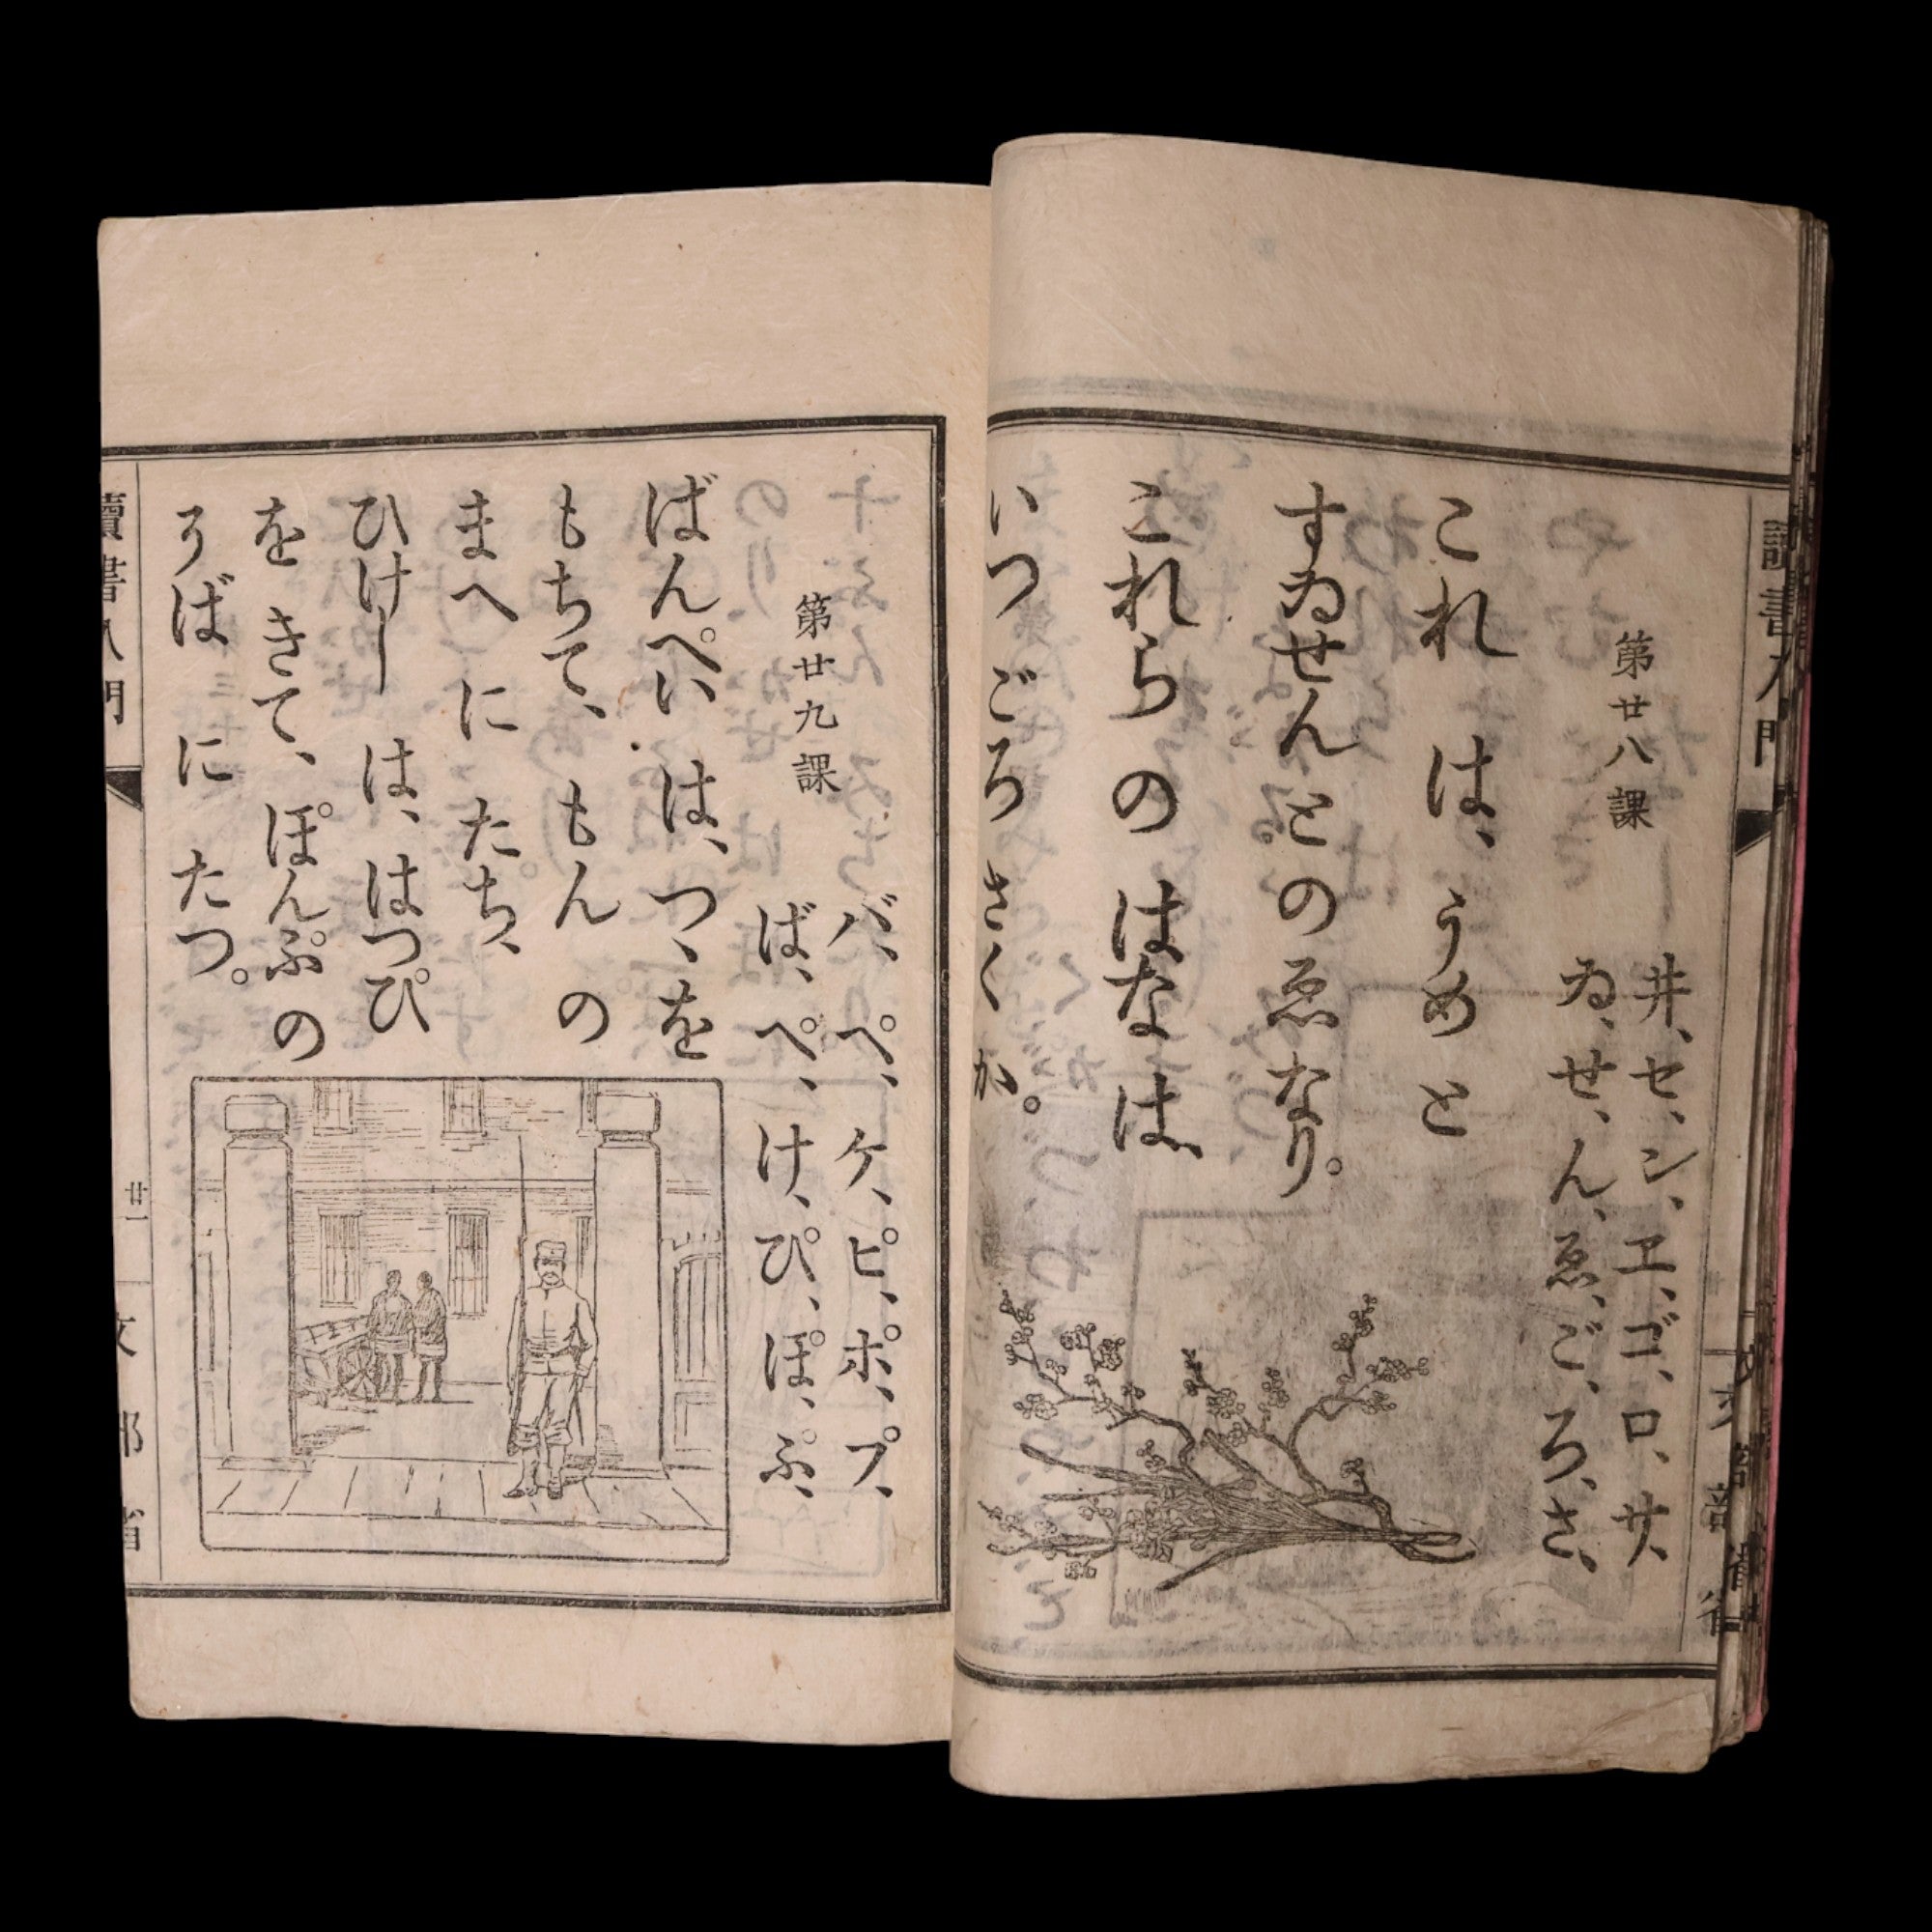 讀書入門
第廿八課
井、セ、ン、ヱ、ゴ、ロ、サ、
ゐ、せ、ん、ゑ、ご、ろ、さ、
これ は、うめ と
すゐせん と の ゑ なり。
これら の はな は、
いつ ごろ さく か。
文部省
第廿九課
バ、ペ、ケ、ピ、ポ、プ、
ば、ぺ、け、ぴ、ぽ、ぷ、
ばんぺい は、つゝ を
もちて、もん の
まへ に たち、
ひけし は、はつぴ
を きて、ぽんぷ の
そば に たつ。
讀書入門
廿一
文部省